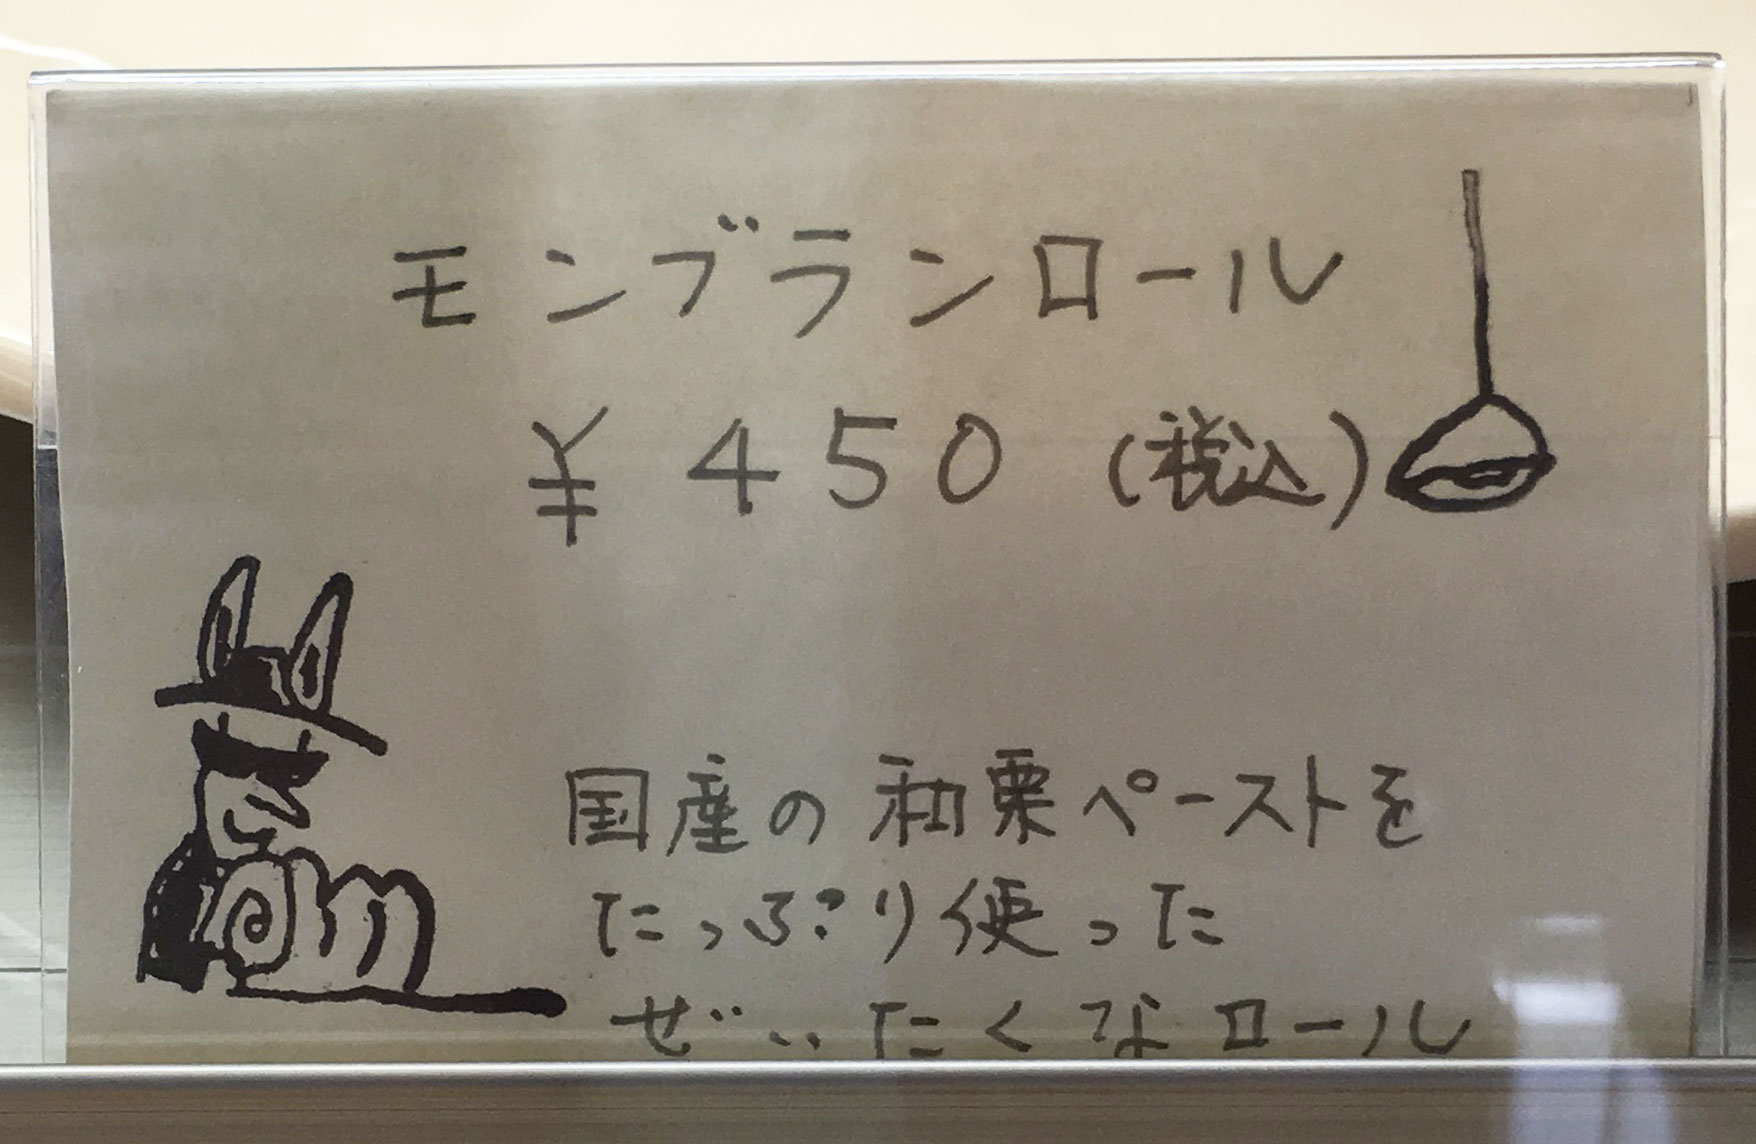 モンブランロール
¥450(税込)
国産の和栗ペーストを
たっぷり使った
ぜいたくなロール